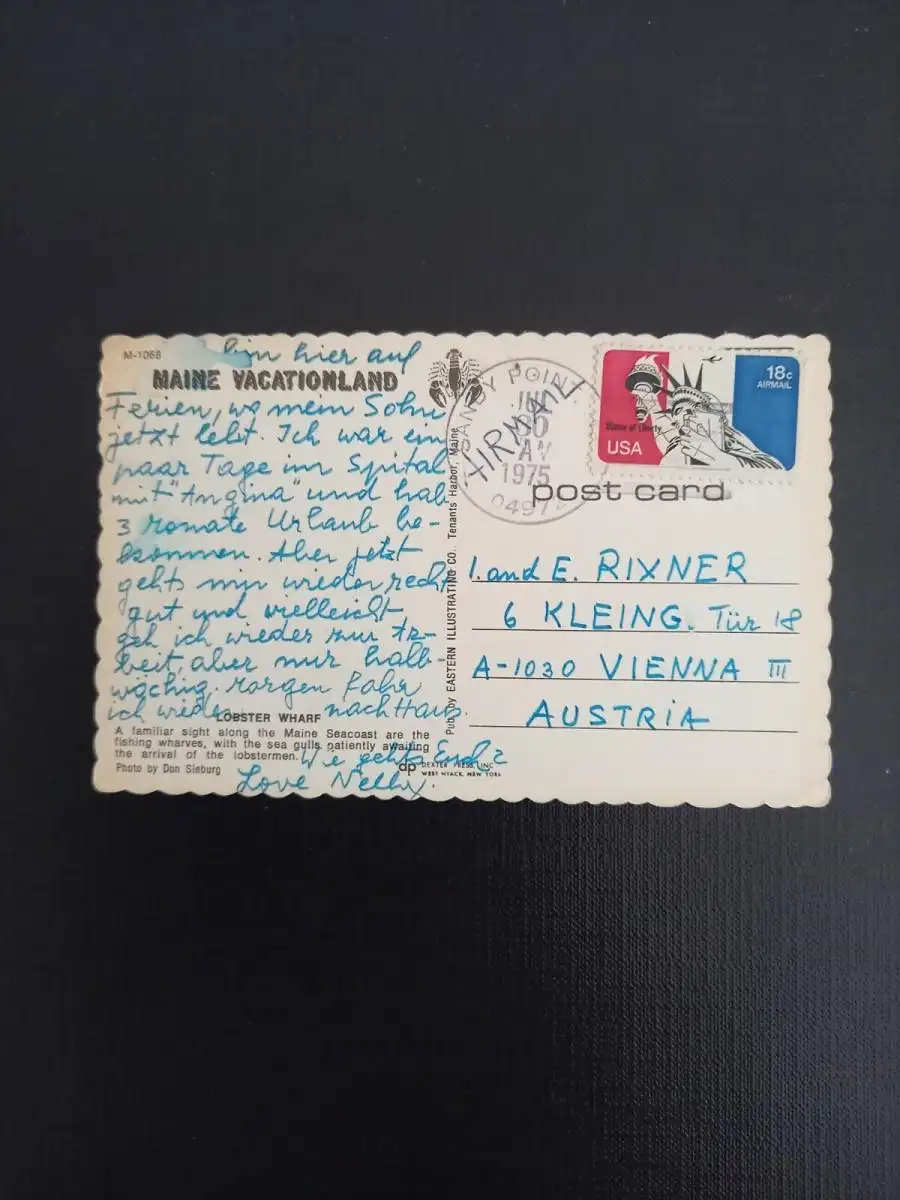 M-1068
bin hier auf
MAINE VACATIONLAND
Ferien, wo mein Sohn
jetzt lebt. Ich war ein
paar Tage im Spital
mit "Angina" und hab
3 Monate Urlaub be-
kommen. Aber jetzt
gehts mir wieder recht
gut und vielleicht
geh ich wieder zur Ar-
beit, aber nur halb-
wöchig. Morgen fahr
ich wieder nach Haus.
LOBSTER WHARF
A familiar sight along the Maine Seacoast are the
fishing wharves, with the sea gulls patiently awaiting
the arrival of the lobstermen.
Photo by Don Sieburg
Wie gehts Euch?
Love Nelly.
Pub. by EASTERN ILLUSTRATING CO., Tenants Harbor, Maine
dp DEXTER PRESS, INC.
WEST NYACK, NEW YORK
SANDY POINT
AM
1975
AIRMAIL
18c
AIRMAIL
Statue of Liberty
USA
post card
I. and E. RIXNER
6 KLEING. Tür 18
A-1030 VIENNA III
AUSTRIA